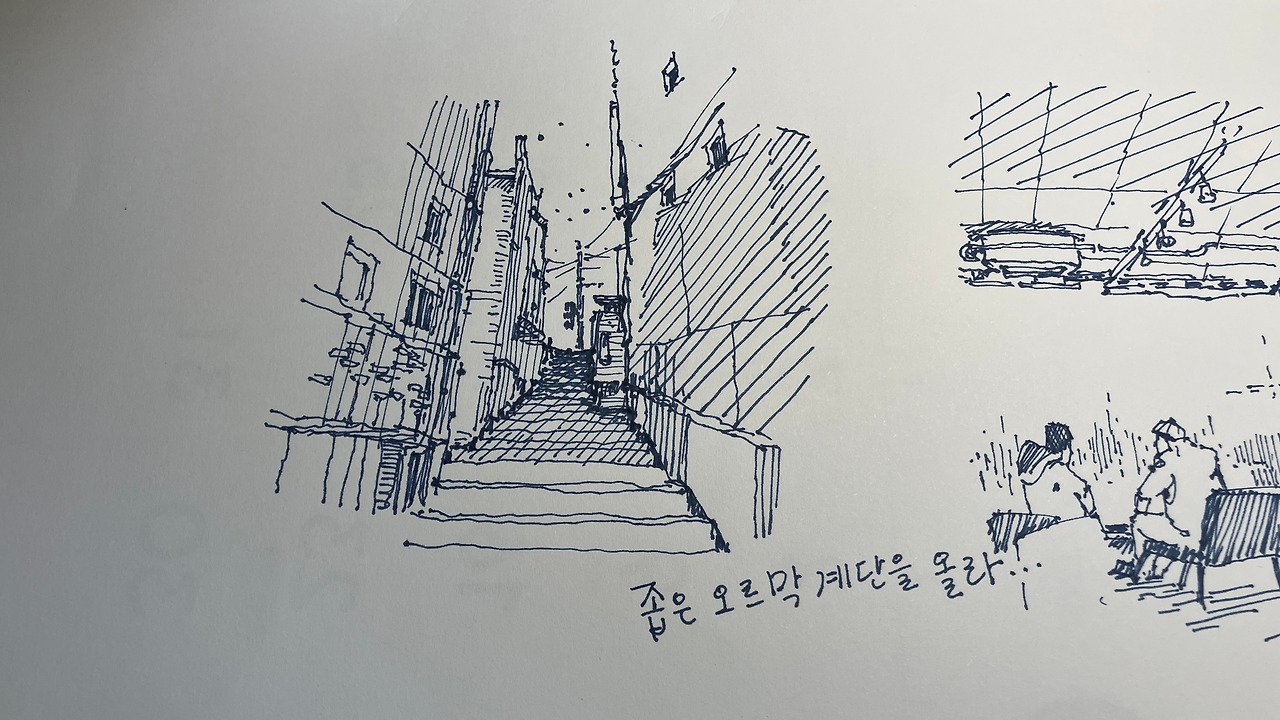 좁은 오르막 계단을 올라...